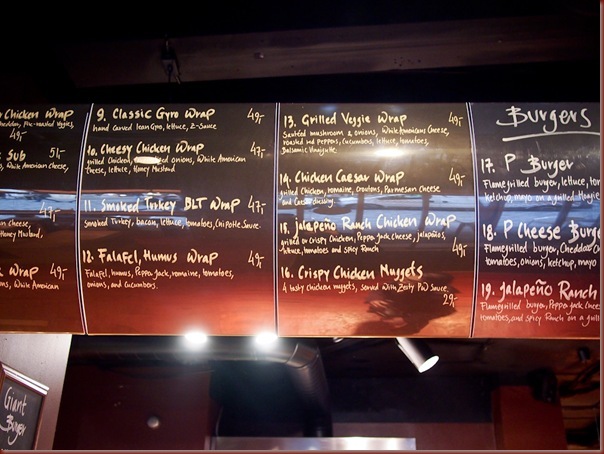 Chicken Wrap
Cheddar, Fire-roasted Veggies,
49,-
Sub 54,-
while American Cheese,
47,-
Honey Mustard,
Wrap 49,-
onions, While American
9. Classic Gyro Wrap 49,-
hand Carved lean Gyro, lettuce, Z-Sauce
10. Cheesy Chicken Wrap 47,-
grilled Chicken, onions, While American
Cheese, lettuce, Honey Mustard
11. Smoked Turkey BLT Wrap 47,-
smoked Turkey, bacon, lettuce, tomatoes, Chipotle Sauce
12. Falafel, Humus Wrap 49,-
Falafel, humus, Pepper Jack, romaine, tomatoes,
onions, and cucumbers.
13. Grilled Veggie Wrap 49,-
Sautéed mushroom & onions, While American Cheese,
roasted red peppers, Cucumbers, lettuce, tomatoes,
Balsamic Vinaigrette
14. Chicken Caesar Wrap 49,-
grilled chicken, romaine, croutons, Parmesan cheese
and Caesar dressing.
15. Jalapeño Ranch Chicken Wrap
grilled or crispy Chicken, Pepper Jack Cheese, Jalapeños,
lettuce, tomatoes and spicy Ranch 49,-
16. Crispy Chicken Nuggets
4 tasty chicken nuggets, served with Zesty Paw Sauce
29,-
Burgers
17. P Burger
Flamegrilled burger, lettuce, tom
ketchup, mayo on a grilled Hoagie
18. P Cheese Burger
Flamegrilled burger, Cheddar Ch
tomatoes, onions, ketchup, mayo
19. Jalapeño Ranch
Flamegrilled burger, Pepper Jack Cheese
tomatoes, and spicy Ranch on a grill
Giant
Burger